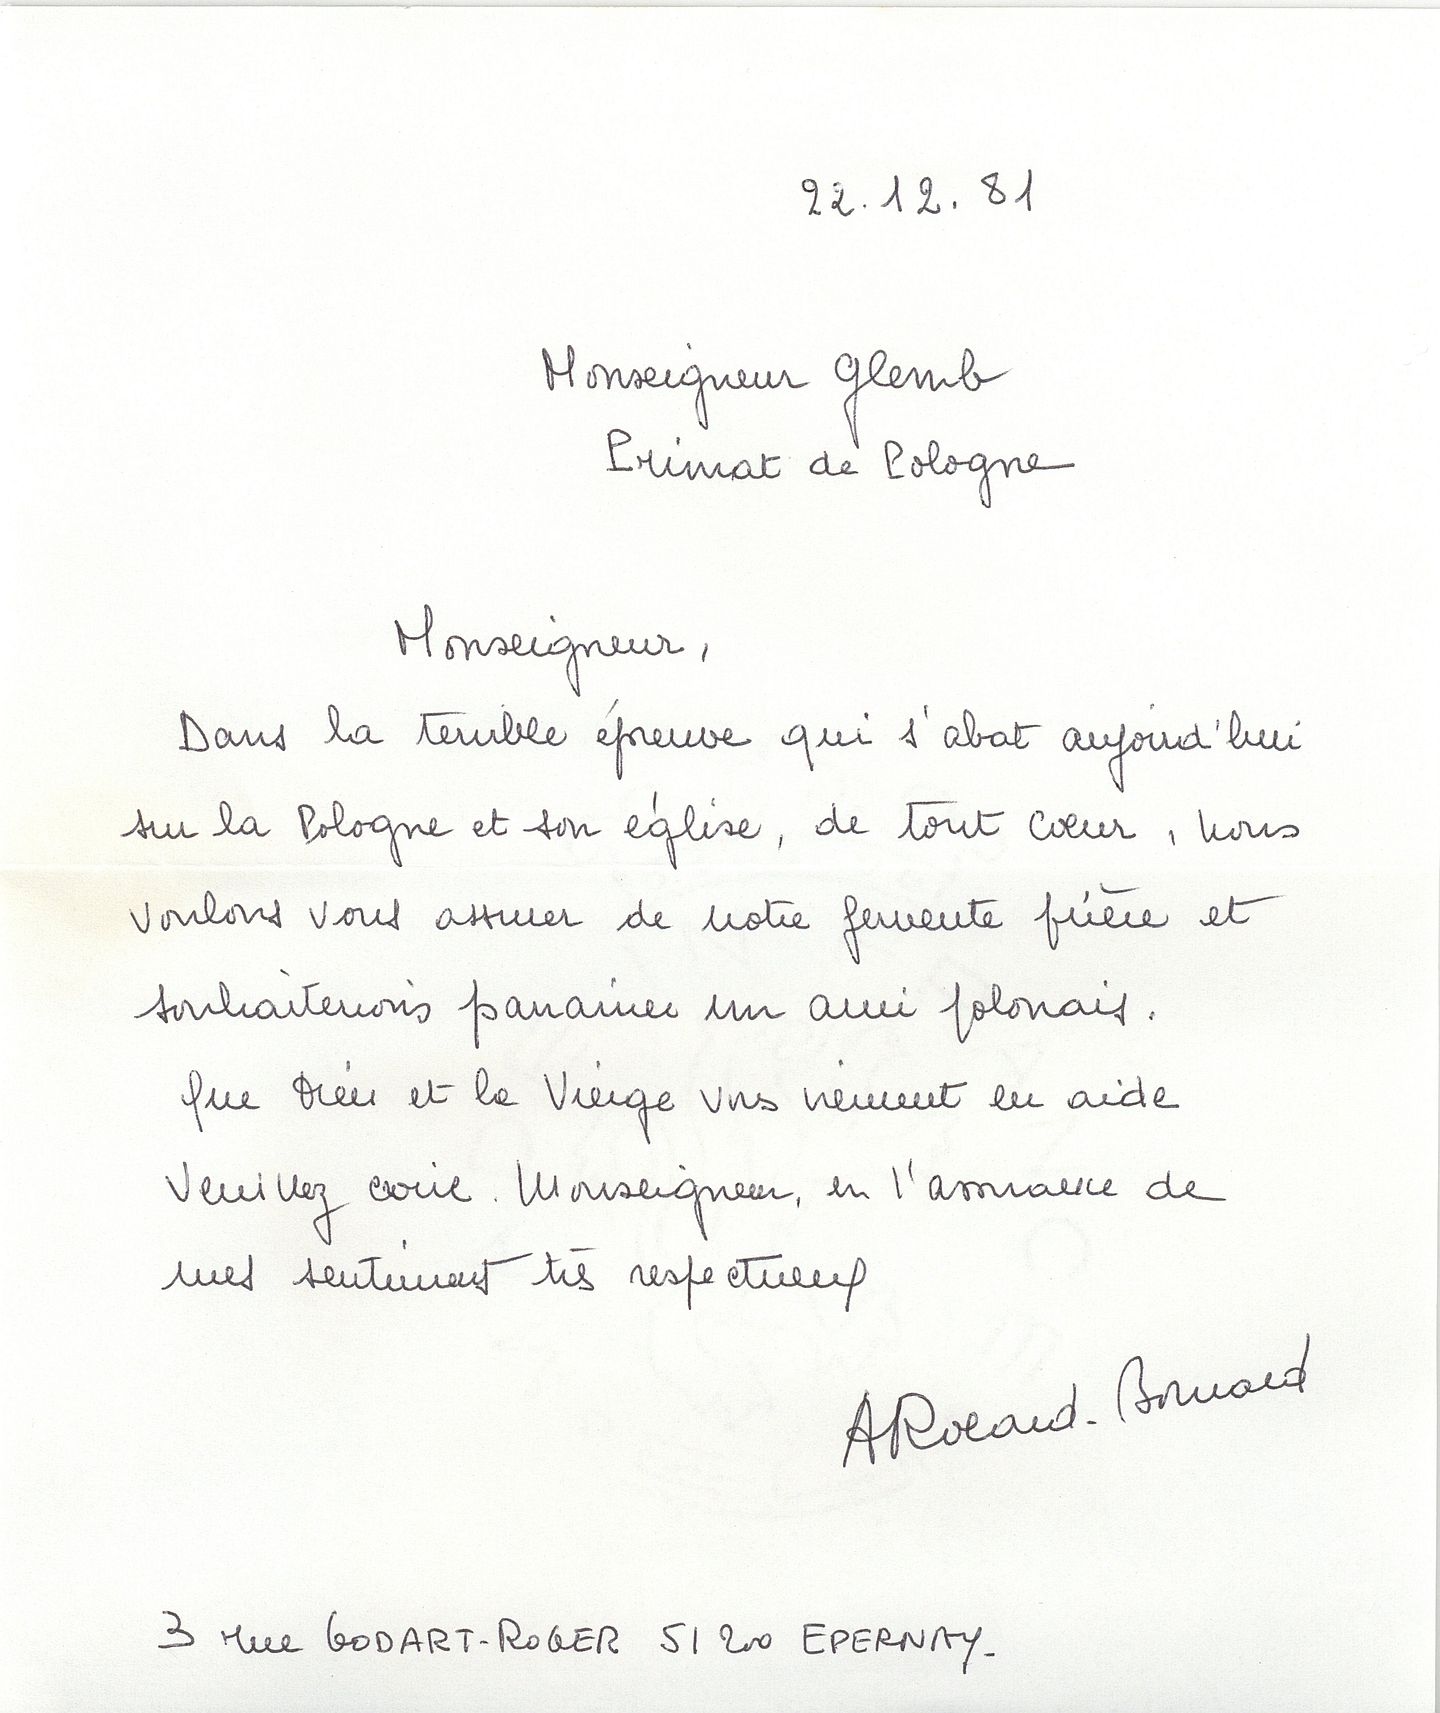 22.12.81
Monseigneur Glemb
Primat de Pologne
Monseigneur,
Dans la terrible épreuve qui s'abat aujourd'hui
sur la Pologne et son église, de tout cœur, nous
voulons vous assurer de notre fervente prière et
souhaiterions parrainer un ami polonais.
Que Dieu et la Vierge vous viennent en aide
Veuillez croire. Monseigneur, en l'assurance de
mes sentiments très respectueux
3 rue GODART-ROGER 51200 EPERNAY-